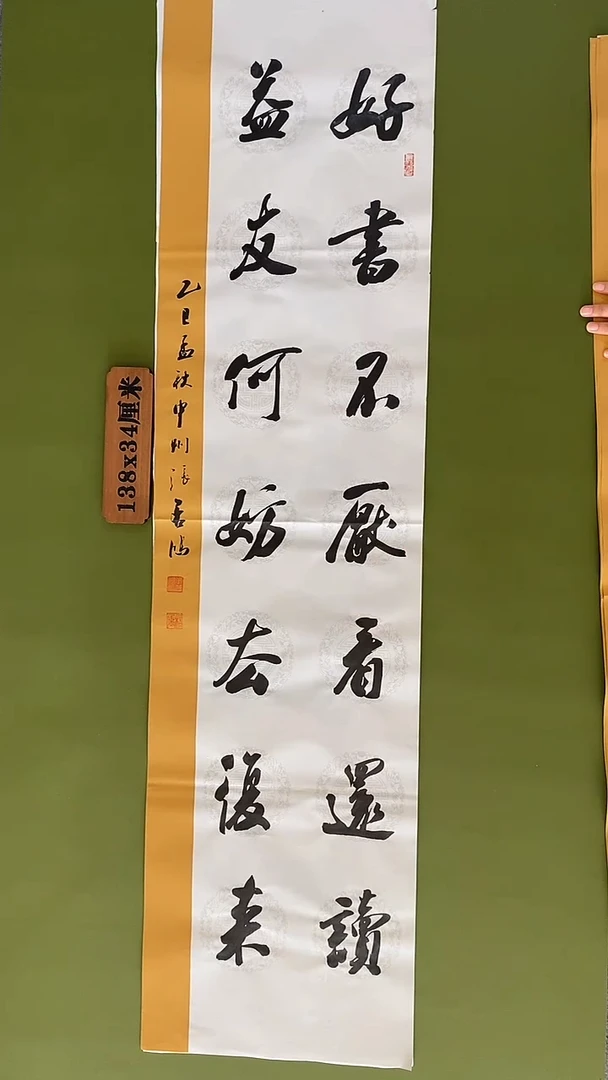 好書不厭看還讀
益友何妨去復来
乙巳孟秋中州張
138x34厘米